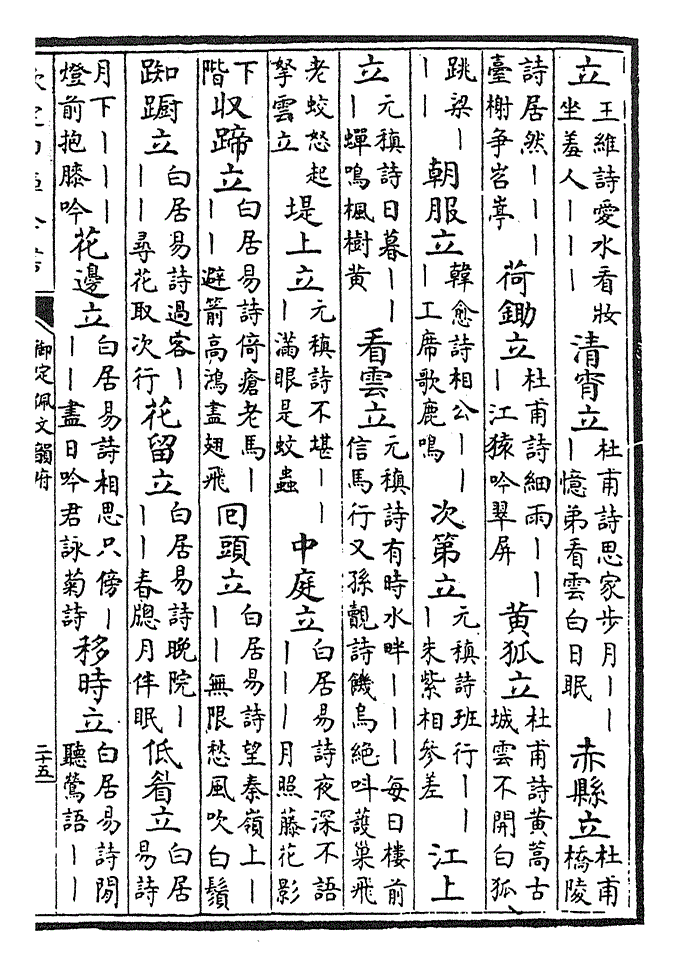 立王維詩愛水看妝坐羞人｜｜｜清宵立杜甫詩思家步月｜｜｜憶弟看雲白日眠赤縣立杜甫橋陵
詩居然｜｜｜臺榭争岧亭荷鋤立杜甫詩細雨｜｜｜江猿吟翠屏黄狐立杜甫詩黄蒿古城雲不開白狐
跳梁｜｜｜朝服立韓愈詩相公｜｜｜工席歌鹿鳴次第立元稹詩班行｜｜｜朱紫相參差江上
立元稹詩日暮｜｜｜蟬鳴楓樹黄看雲立元稹詩有時水畔｜｜｜每日樓前信馬行又孫覿詩饑烏絶呌護巢飛
老蛟怒起拏雲立堤上立元稹詩不堪｜｜｜滿眼是蚊蟲中庭立白居易詩夜深不語｜｜｜月照藤花影
下階收蹄立白居易詩倚瘡老馬｜｜｜避箭高鴻盡翅飛囘頭立白居易詩望秦嶺上｜｜｜無限愁風吹白鬚
踟蹰立白居易詩過客｜｜｜尋花取次行花留立白居易詩晚院｜｜｜春牕月伴眠低眷立白居易詩
月下｜｜｜燈前抱膝吟花邊立白居易詩相思只傍｜｜｜盡日吟君詠菊詩移時立白居易詩閒聽鶯語｜｜
御定佩文韻府
二十五